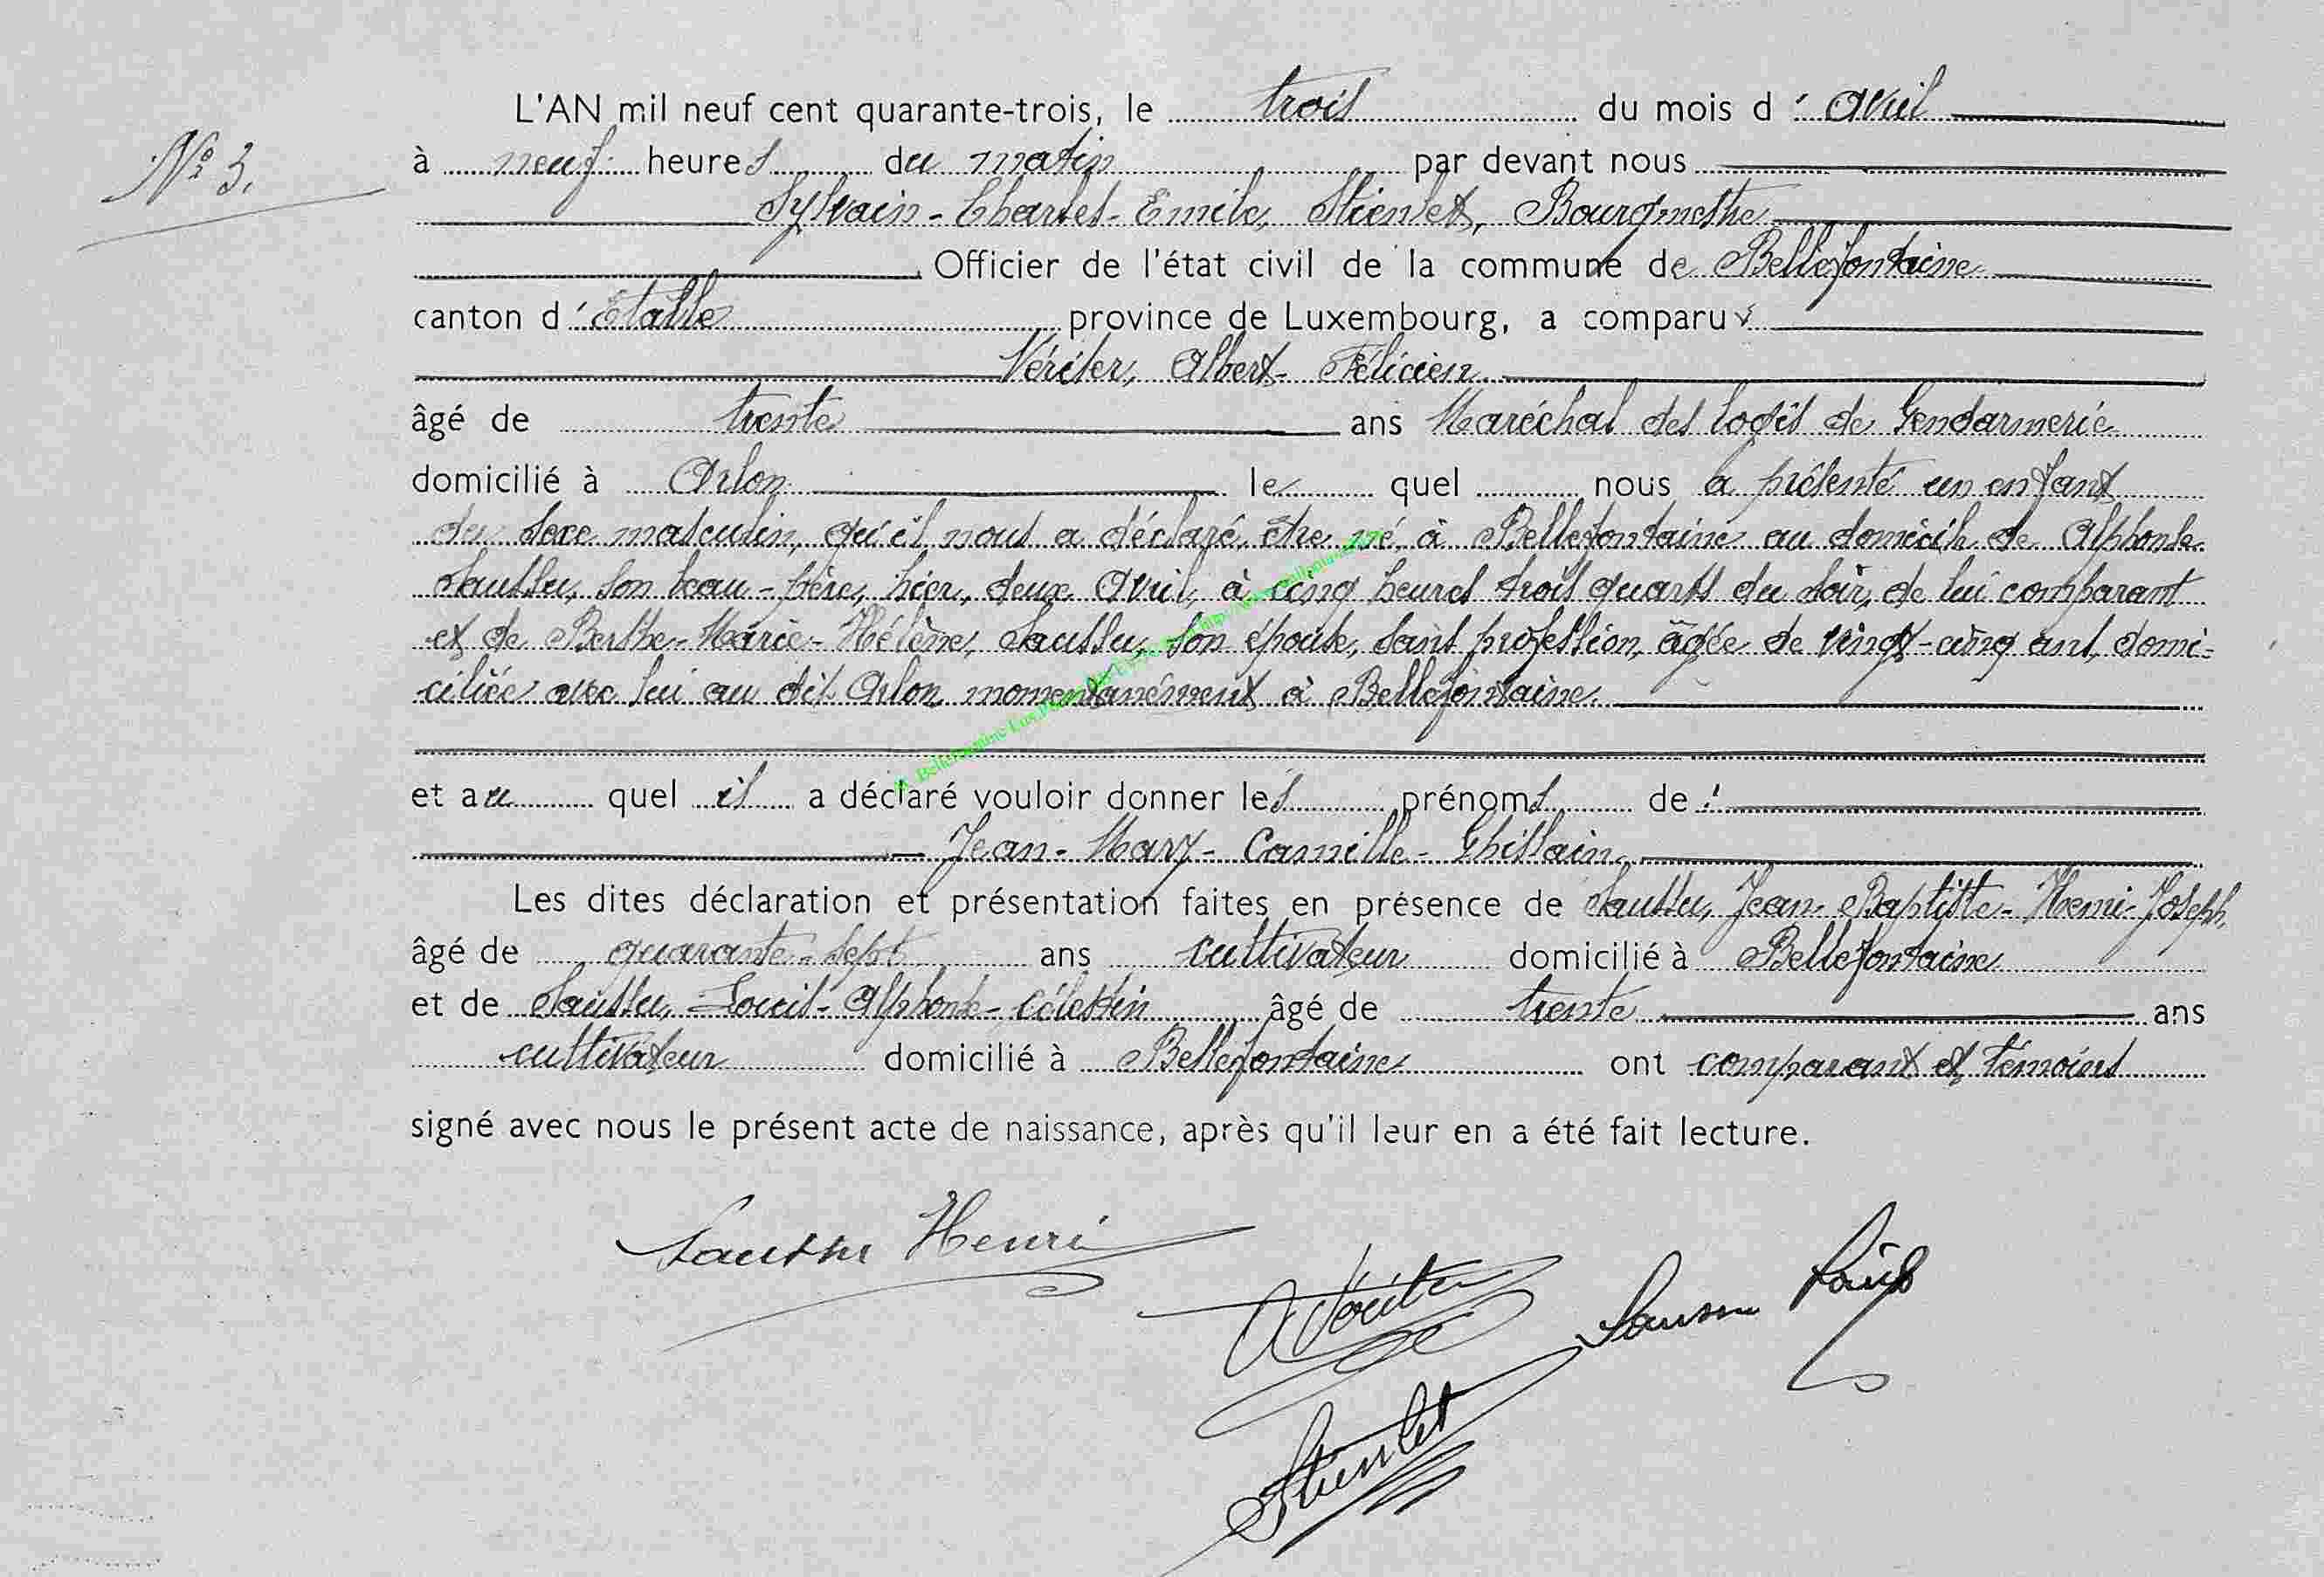 L'AN mil neuf cent quarante-trois, le trois du mois d' Avril
N° 3.
à neuf heures du matin par devant nous
Sylvain-Charles-Emile, Stienlet, Bourgmestre
Officier de l'état civil de la commune de Bellefontaine
canton d'Etalle province de Luxembourg, a comparu
Vériter, Albert-Félicien
âgé de trente ans Maréchal des logis de Gendarmerie
domicilié à Arlon le quel nous a présenté un enfant
du sexe masculin, qu'il nous a déclaré être né à Bellefontaine au domicile de Alphonse
Saussu, son beau-père, hier, deux Avril, à cinq heures trois quarts du soir, de lui comparant
et de Berthe-Marie-Hélène, Saussu, son épouse, sans profession, âgée de vingt-cinq ans, domi-
ciliée avec lui au dit Arlon, momentanément à Bellefontaine.
et au quel il a déclaré vouloir donner les prénoms de :
Jean-Mary-Camille-Ghislain
Les dites déclaration et présentation faites en présence de Saussu, Jean-Baptiste-Henri-Joseph,
âgé de quarante-sept ans cultivateur domicilié à Bellefontaine
et de Saussu, Louis-Alphonse-Célestin âgé de trente ans
cultivateur domicilié à Bellefontaine ont comparant et témoins
signé avec nous le présent acte de naissance, après qu'il leur en a été fait lecture.
Saussu Henri
A Vériter
Saussu Louis
Stienlet